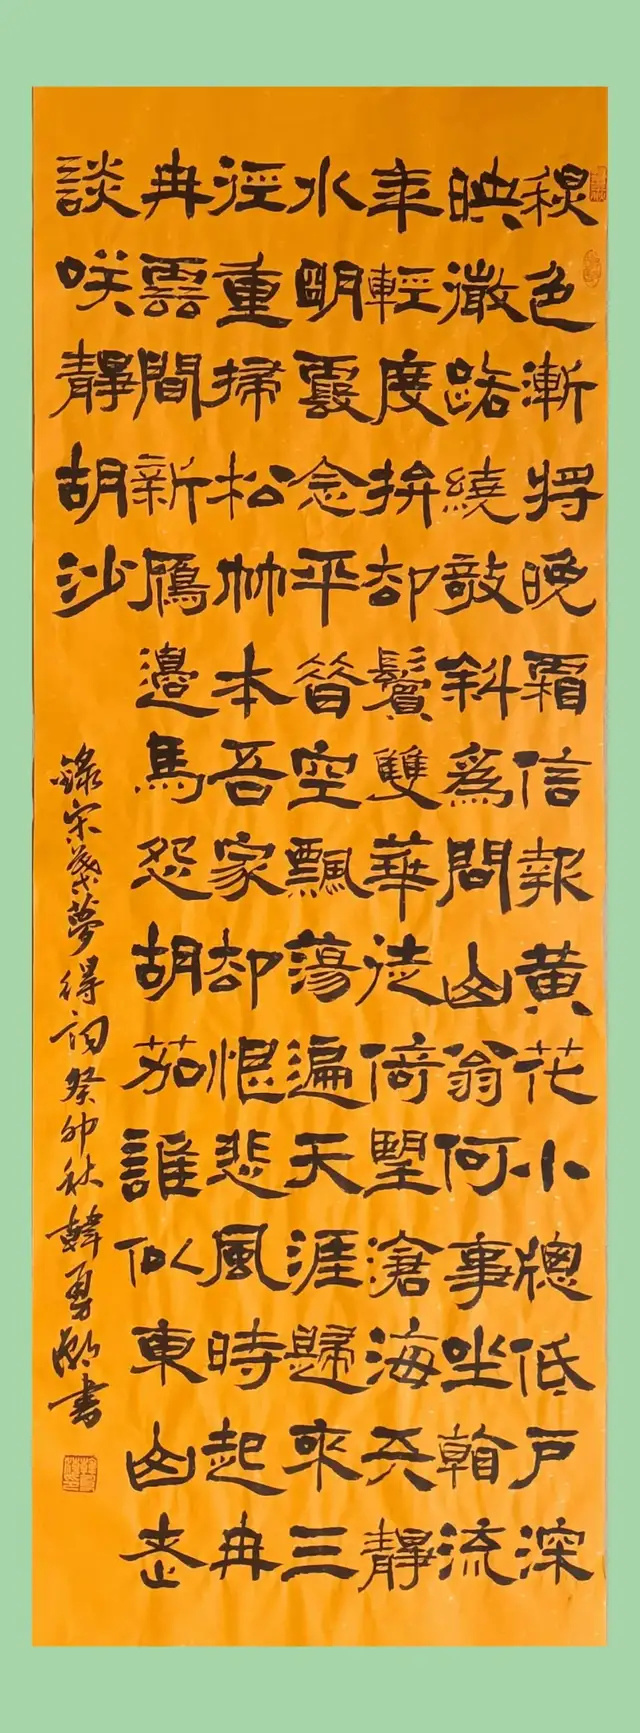 秋色漸將晚霜信報黃花小牕低戶深
映微路繞敧斜爲問山翁何事坐看流
年輕度拚却鬢雙華徙倚朢滄海天靜
水明霞念平昔空飄蕩遍天涯歸來三
徑重掃松竹本吾家却恨悲風時起冉
冉雲間新鴈邊馬怨胡笳誰似東山老
談咲靜胡沙
錄宋葉夢得詞癸卯秋韓勇書